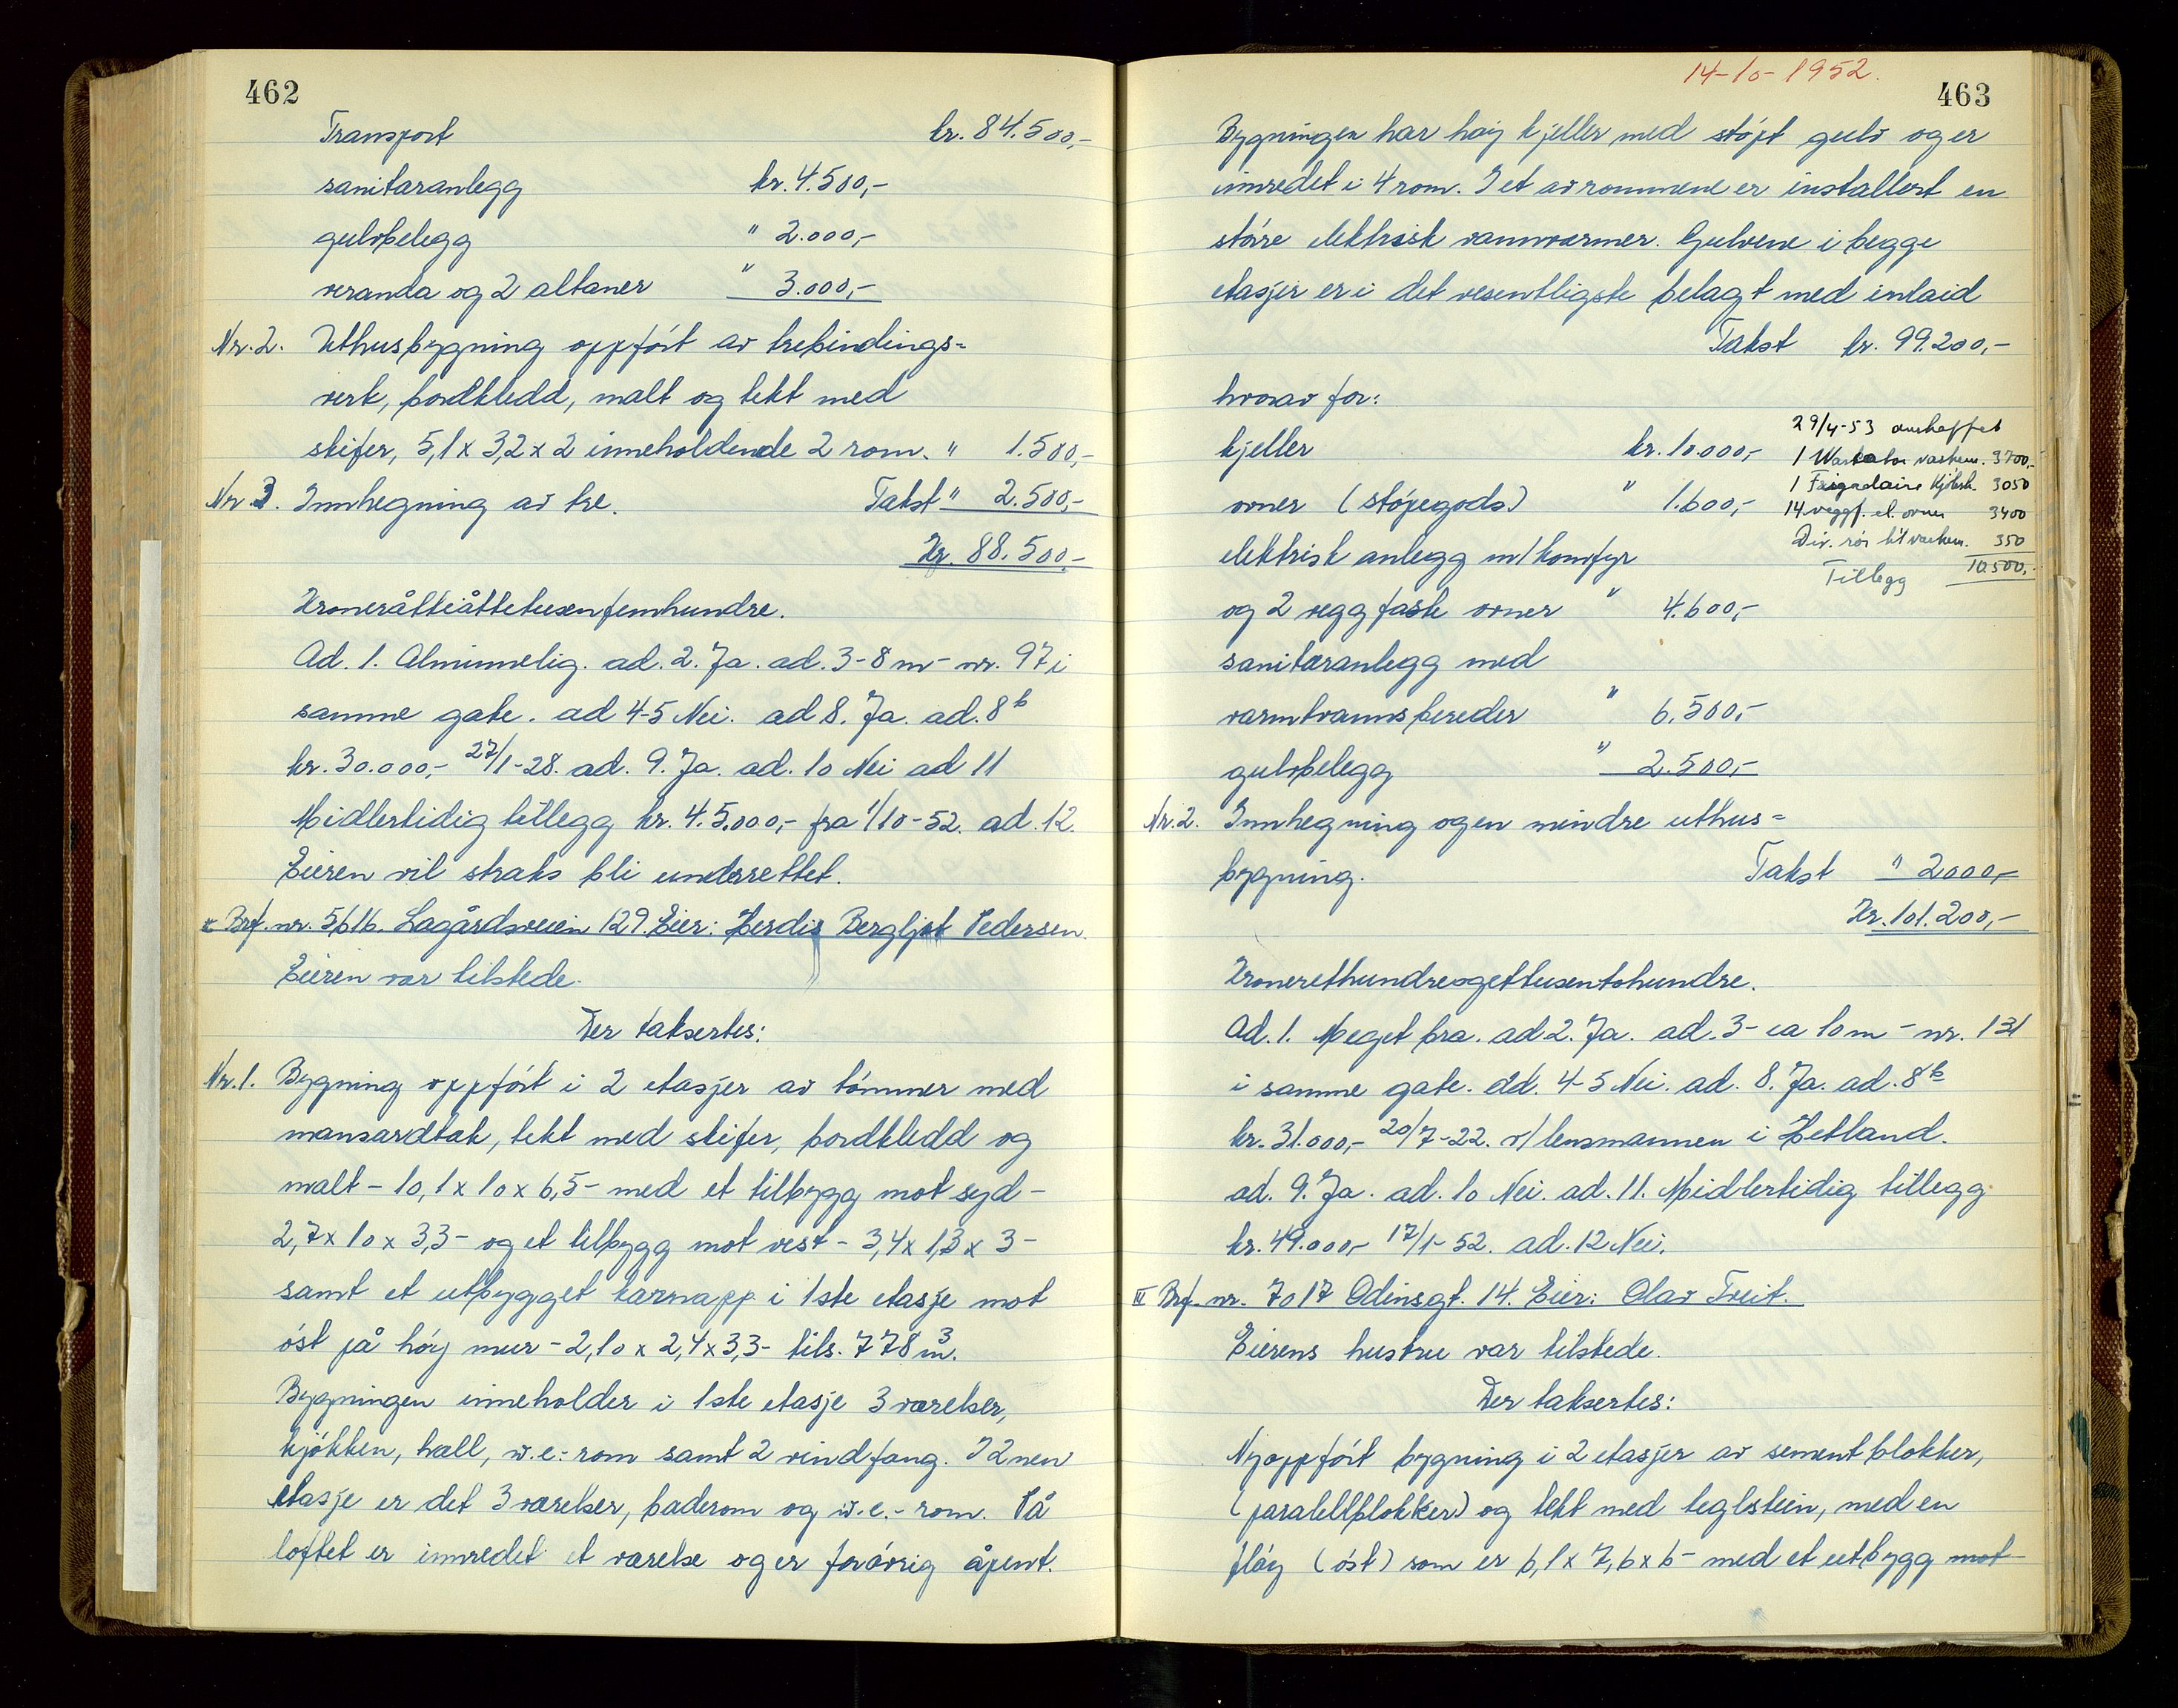 462
Transport kr. 84.500,-
sanitæranlegg kr. 4.500,-
gulvbelegg " 2.000,-
veranda og 2 altaner " 3.000,-
Nr. 2. Uthusbygning oppført av trebindings=
verk, bordkledd, malt og tekt med
skifer, 5,1 x 3,2 x 2 inneholdende 2 rom. " 1.500,-
Nr 3. Innhegning av tre. Takst " 2.500,-
Kr. 88.500,-
Kroneråttiåttetusenfemhundre.
Ad. 1. Alminnelig. ad. 2. Ja. ad. 3- 8 m - nr. 97 i
samme gate. ad 4-5 Nei. ad 8. Ja. ad. 8 b
kr. 30.000,- 27/1-28. ad. 9. Ja. ad. 10 Nei ad 11
Midlertidig tillegg kr. 45.000,- fra 1/10-52. ad. 12.
Eieren vil straks bli underrettet.
II Brf. nr. 5616. Lagårdsveien 129. Eier: Herdis Bergljot Pedersen.
Eieren var tilstede.
Der taksertes:
Nr. 1. Bygning oppført i 2 etasjer av tømmer med
mansardtak, tekt med skifer, bordkledd og
malt - 10,1 x 10 x 6,5 - med et tilbygg mot syd -
2,7 x 10 x 3,3 - og et tilbygg mot vest - 3,4 x 1,3 x 3 -
samt et utbygget karnapp i 1ste etasje mot
øst på høy mur - 2,10 x 2,4 x 3,3 - tils. 778 m3.
Bygningen inneholder i 1ste etasje 3 værelser,
kjøkken, hall, w.c.- rom samt 2 vindfang. I 2nen
etasje er det 3 værelser, baderom og w.c.- rom. På
loftet er innredet et værelse og er forøvrig åpent.
14-10-1952.
463
Bygningen har høy kjeller med støpt gulv og er
innredet i 4 rom. I et av rommene er installert en
større elektrisk vannvarmer. Gulvene i begge
etasjer er i det vesentligste belagt med inlaid
Takst kr. 99.200,-
hvorav for:
29/4-53 anskaffet
kjeller kr. 10.000,-
1 vaskem. 3700,-
1 Frigadaire Kjølesk. 3050
ovner (støpegods) " 1.600,-
14 veggf. el. ovner 3400
Div. rør til vaskem. 350
elektrisk anlegg m/komfyr
Tillegg 10.500,-
og 2 veggfaste ovner " 4.600,-
sanitæranlegg med
varmtvannsbereder " 6.500,-
gulvbelegg " 2.500,-
Nr. 2. Innhegning og en mindre uthus=
bygning. Takst " 2000,-
Kr. 101.200,-
Kronerethundreogettusentohundre.
Ad. 1. Meget bra. ad 2. Ja. ad. 3- ca 10 m - nr. 131
i samme gate. ad. 4-5 Nei. ad. 8. Ja. ad. 8 b
kr. 31.000,- 20/7-22. v/ lensmannen i Hetland.
ad. 9. Ja. ad. 10 Nei. ad. 11. Midlertidig tillegg
kr. 49.000,- 17/1-52. ad. 12 Nei.
III Brf. nr. 7017 Odinsgt. 14. Eier: Olav Tveit.
Eierens hustru var tilstede.
Der taksertes:
Nyoppført bygning i 2 etasjer av sementblokker,
(paralellblokker) og tekt med teglstein, med en
fløy (øst) som er 6,1 x 7,6 x 6 - med et utbygg mot